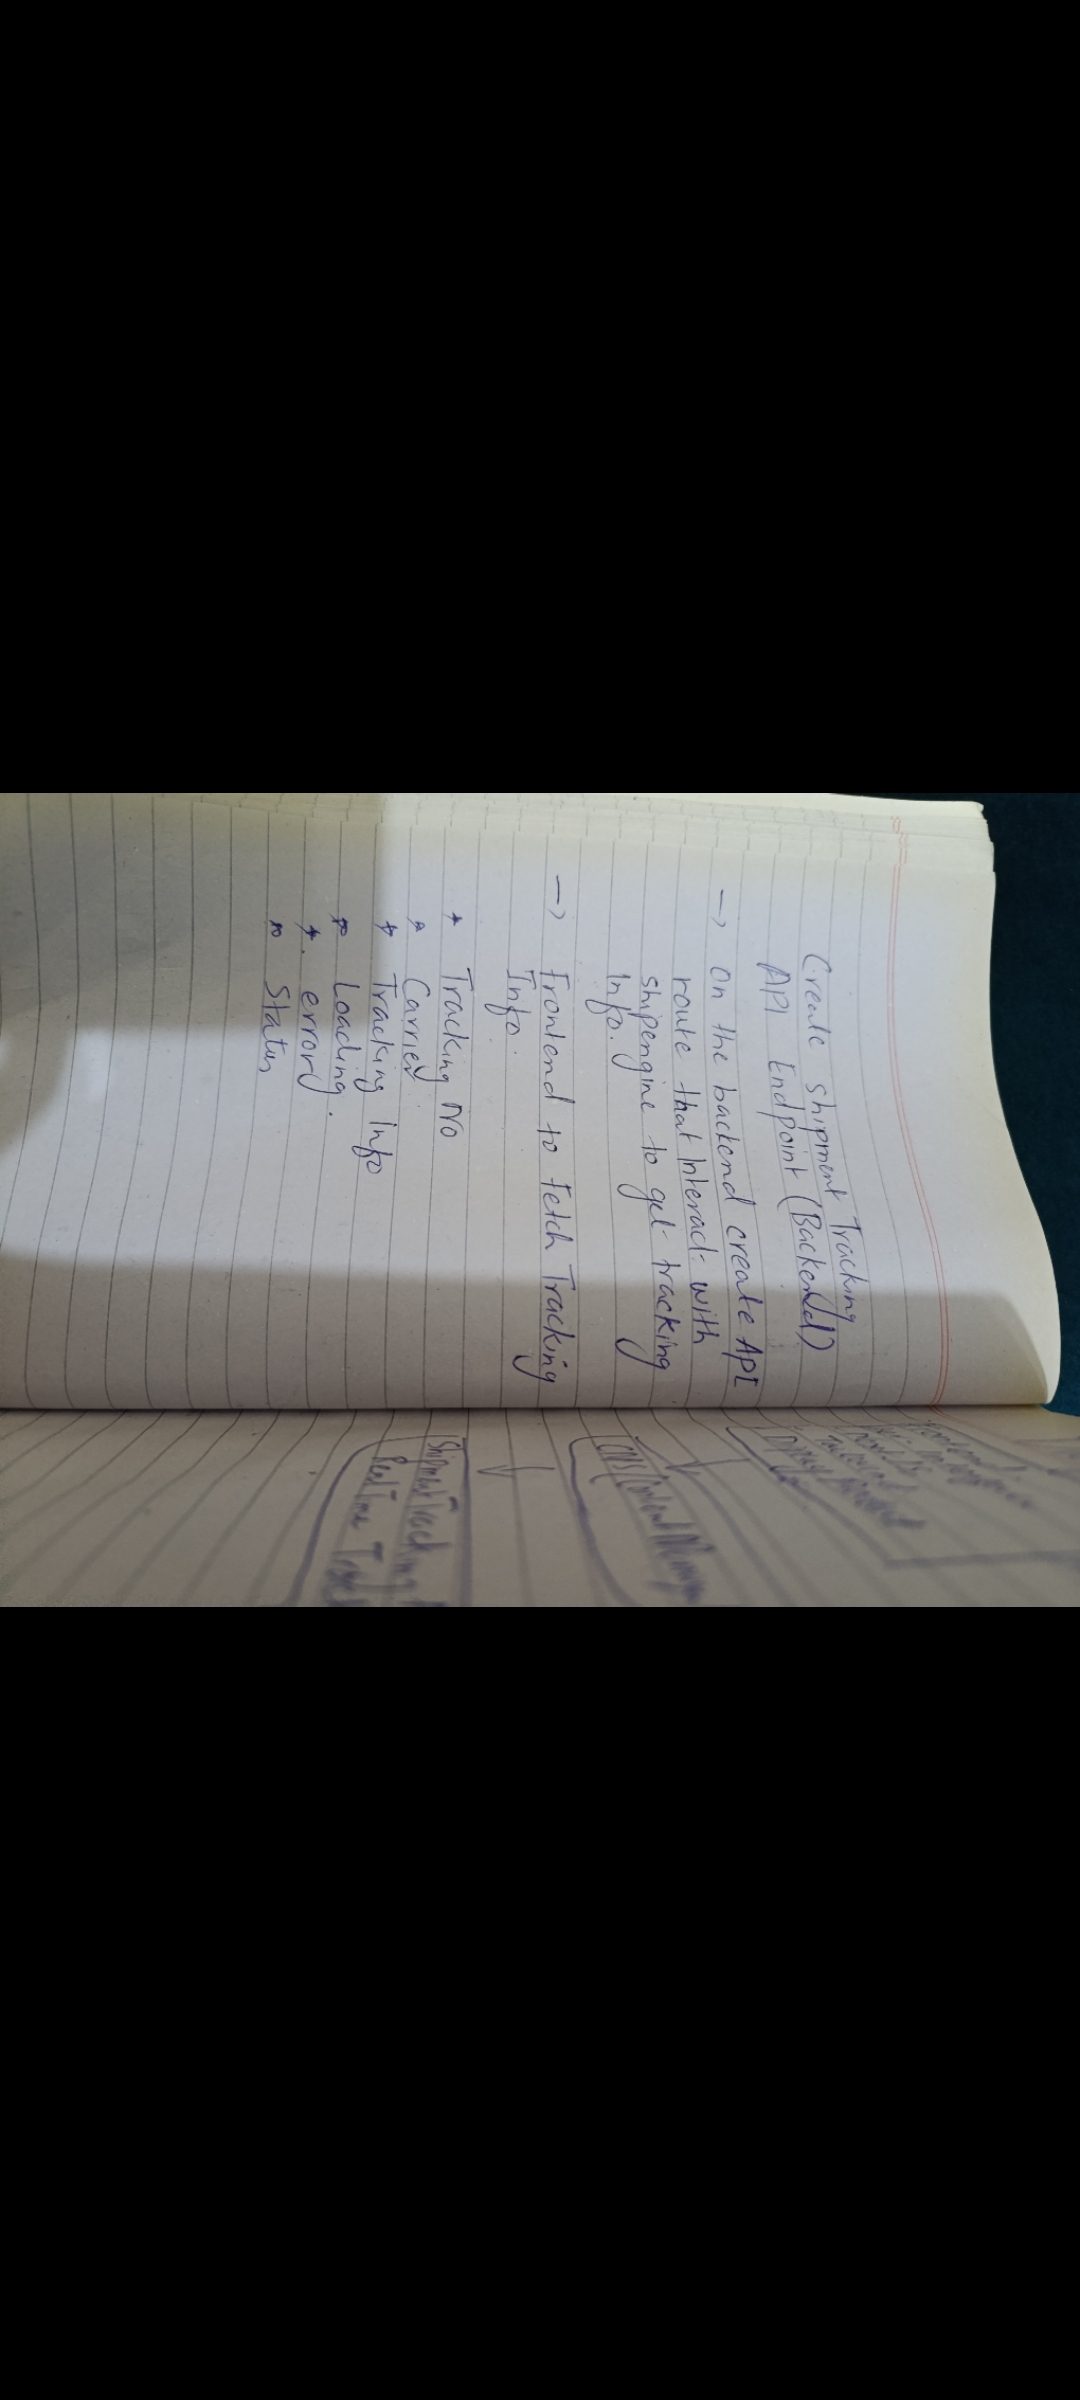 Create shipment Tracking
API Endpoint (Backend)
→ on the backend create API
route that Interact with
shipengine to get tracking
Info.
→ Frontend to Fetch Tracking
Info.
* Tracking No
* Carrier
* Tracking Info
* Loading.
* error
* Status
Shipment Tracking
Real Time